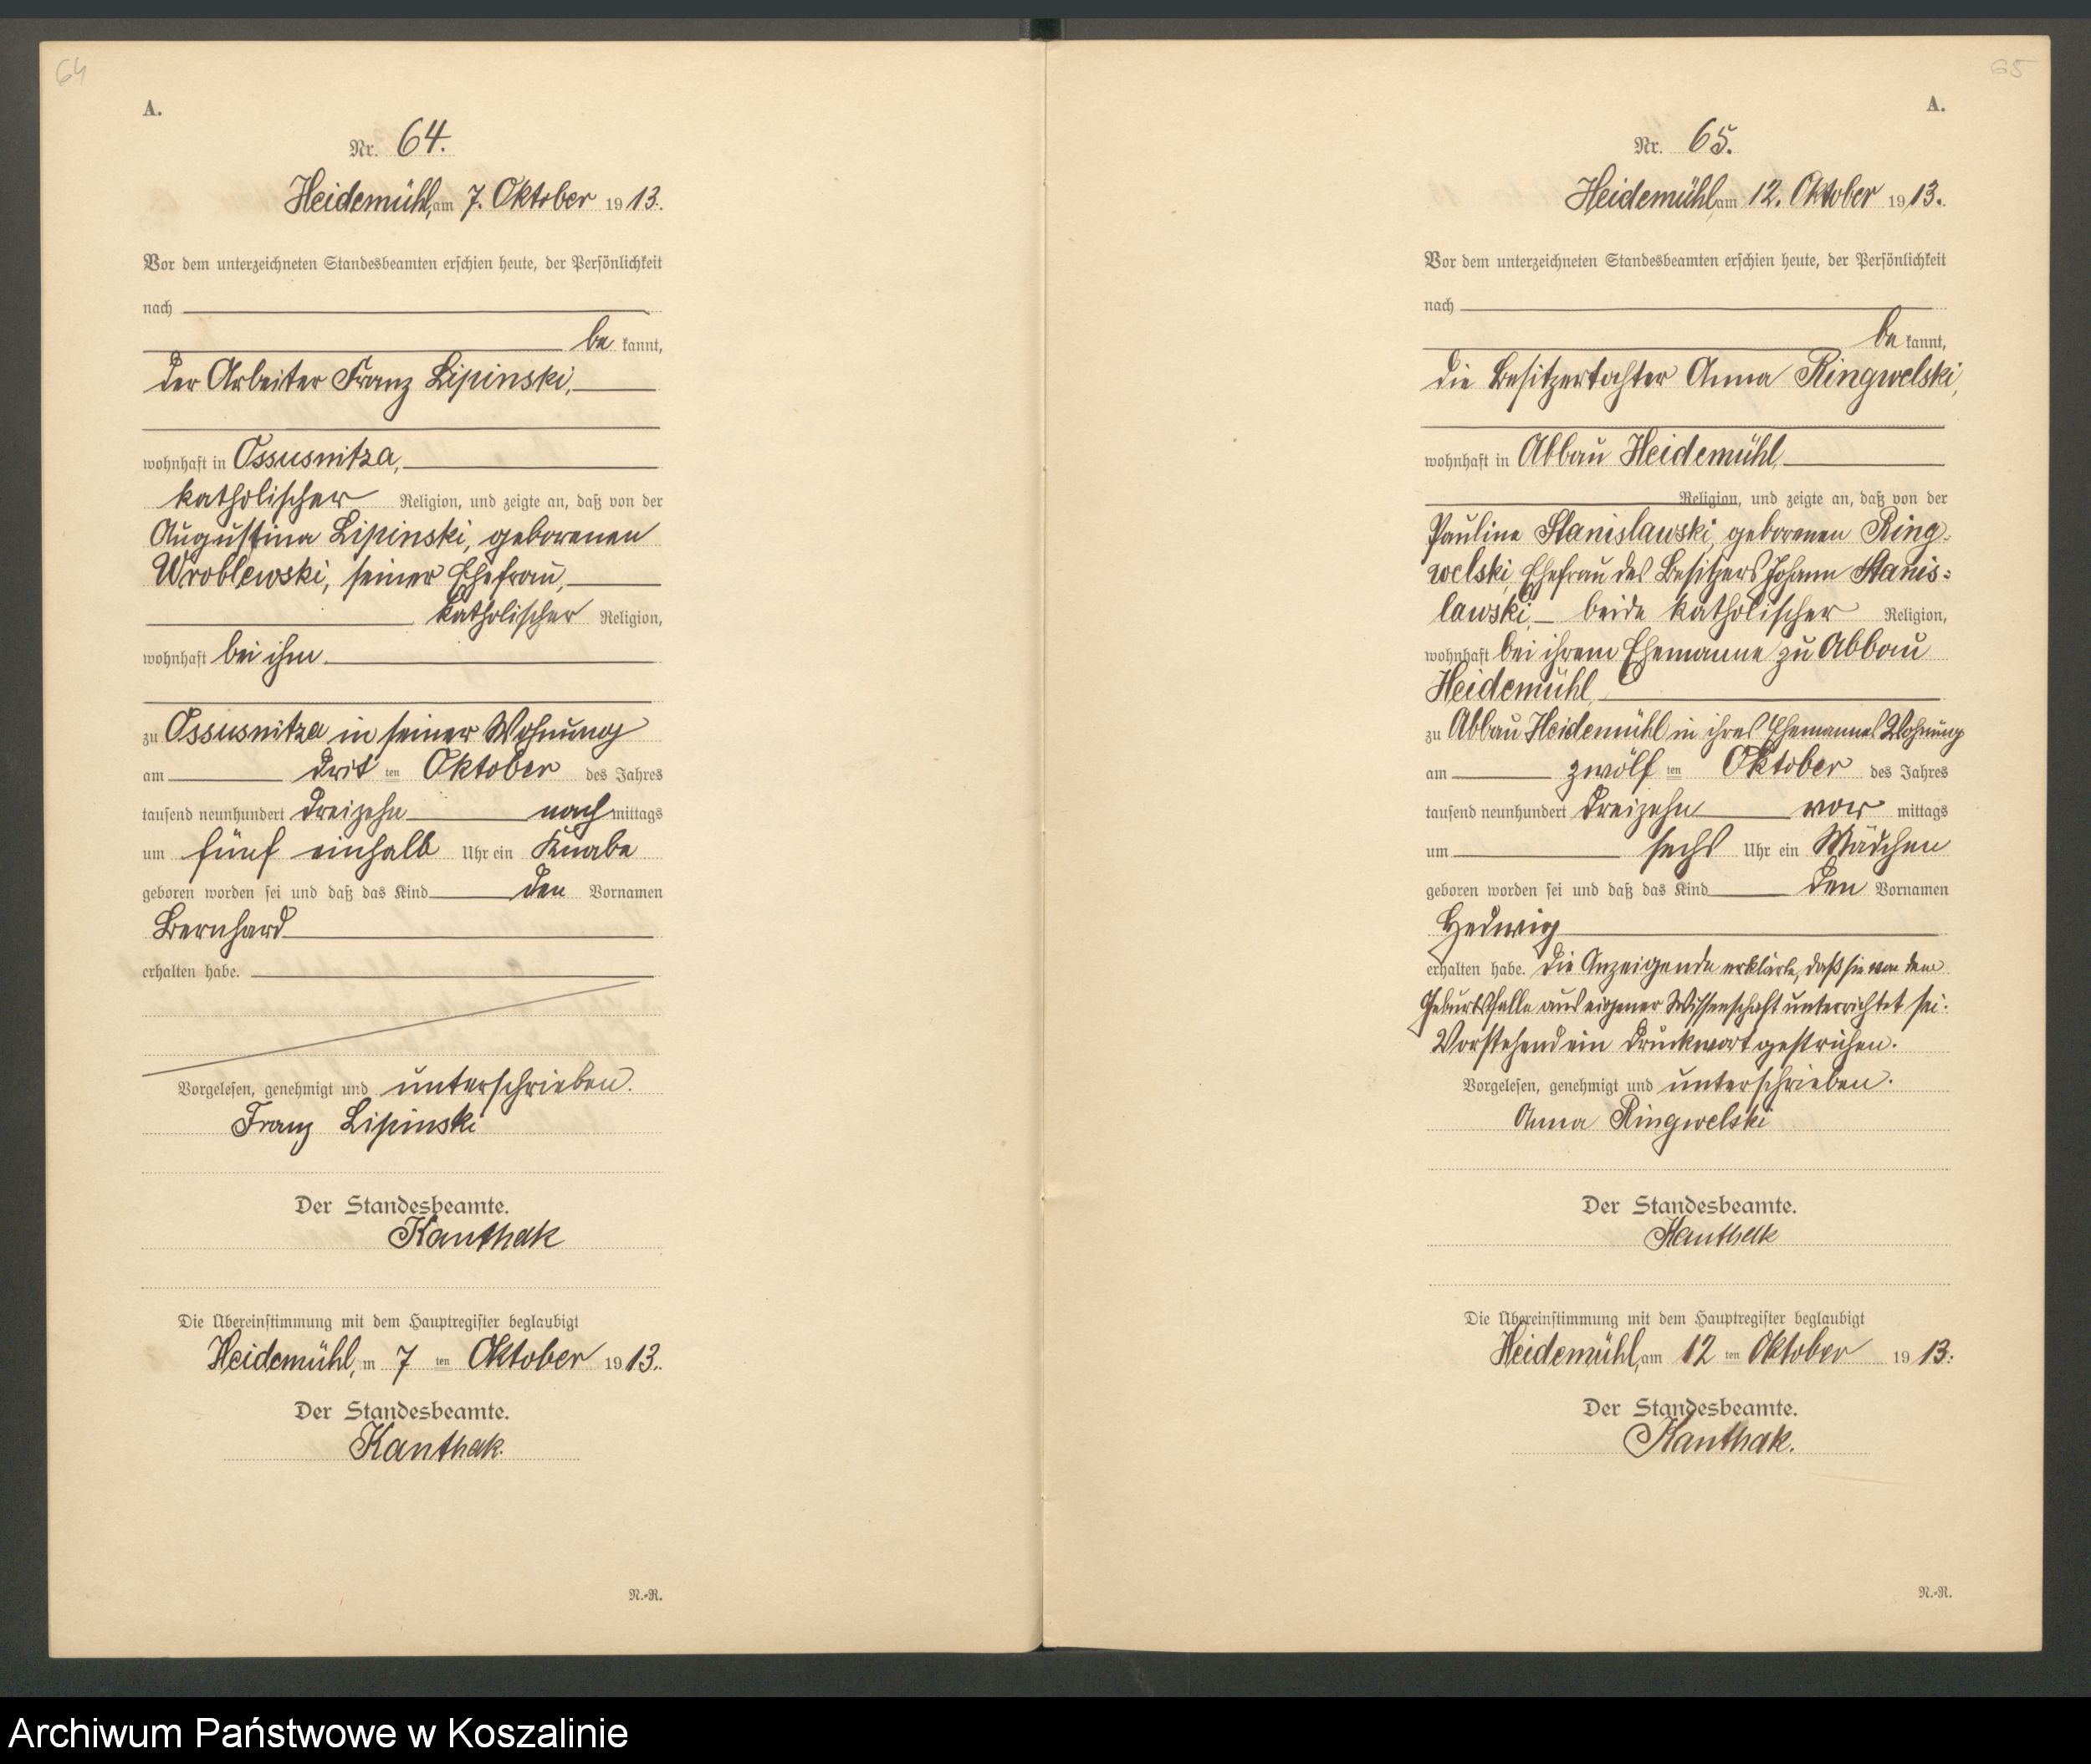 64
A.
Nr. 64.
Heidemühl, am 7. Oktober 1913.
Vor dem unterzeichneten Standesbeamten erschien heute, der Persönlichkeit
nach
be kannt,
der Arbeiter Franz Lipinski,
wohnhaft in Ossusnitza,
katholischer Religion, und zeigte an, daß von der
Augustina Lipinski, geborenen
Wroblewski, seiner Ehefrau,
katholischer Religion,
wohnhaft bei ihm.
zu Ossusnitza in seiner Wohnung
am drit ten Oktober des Jahres
tausend neunhundert dreizehn nach mittags
um fünf einhalb Uhr ein Knabe
geboren worden sei und daß das Kind den Vornamen
Bernhard
erhalten habe.
Vorgelesen, genehmigt und unterschrieben.
Franz Lipinski
Der Standesbeamte.
Kanthak
Die Übereinstimmung mit dem Hauptregister beglaubigt
Heidemühl, m 7 ten Oktober 1913.
Der Standesbeamte.
Kanthak.
N.-R.
65
A.
Nr. 65.
Heidemühl, am 12. Oktober 1913.
Vor dem unterzeichneten Standesbeamten erschien heute, der Persönlichkeit
nach
be kannt,
die Besitzertochter Anna Ringwelski,
wohnhaft in Abbau Heidemühl,
Religion, und zeigte an, daß von der
Pauline Stanislawski, geborenen Ring-
welski, Ehefrau des Besitzers Johann Stanis-
lawski, beide katholischer Religion,
wohnhaft bei ihrem Ehemanne zu Abbau
Heidemühl,
zu Abbau Heidemühl in ihres Ehemannes Wohnung
am zwölf ten Oktober des Jahres
tausend neunhundert dreizehn vor mittags
um sechs Uhr ein Mädchen
geboren worden sei und daß das Kind den Vornamen
Hedwig
erhalten habe. Die Anzeigende erklärte, daß sie von dem
Geburtsfalle aus eigener Wissenschaft unterrichtet sei.
Vorstehend ein Druckwort gestrichen.
Vorgelesen, genehmigt und unterschrieben.
Anna Ringwelski
Der Standesbeamte.
Kanthak
Die Übereinstimmung mit dem Hauptregister beglaubigt
Heidemühl, am 12 ten Oktober 1913.
Der Standesbeamte.
Kanthak.
N.-R.
Archiwum Państwowe w Koszalinie